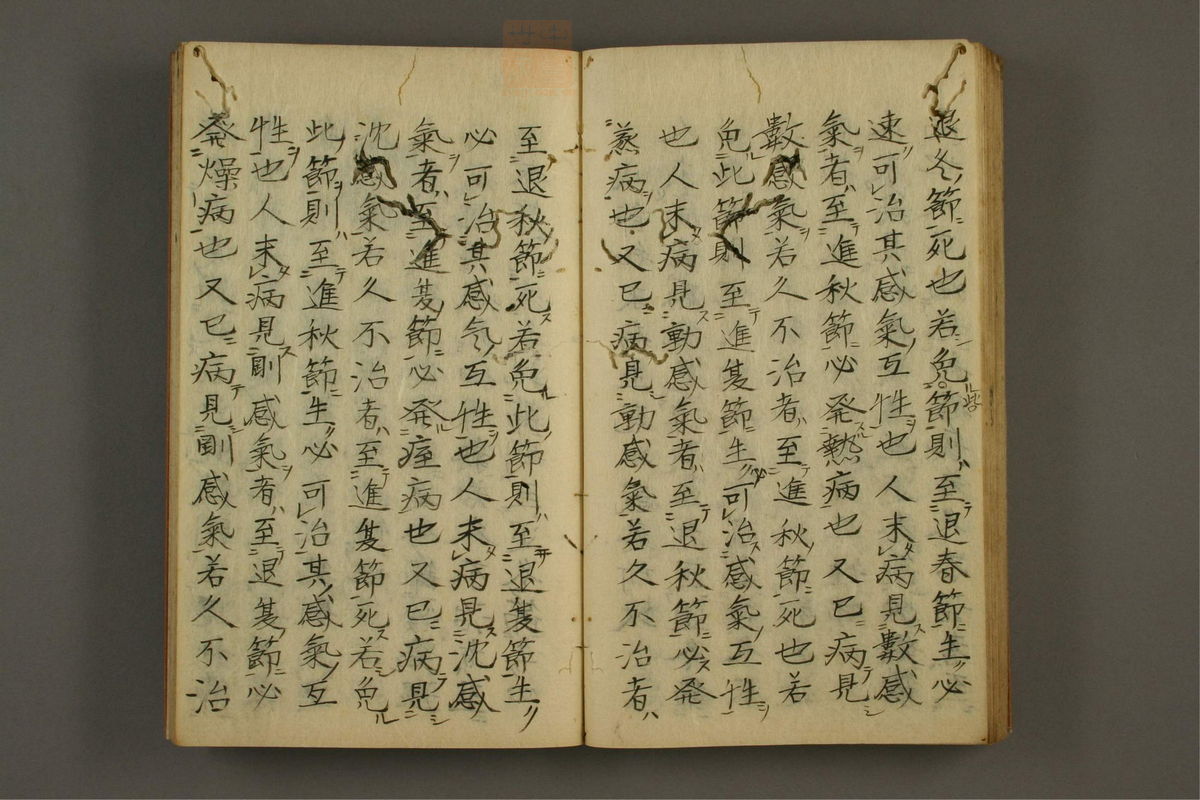 退冬節死也若免節則至退春節生必
速可治其感氣互性也人未病見數感
氣者至進秋節必発熱病也又已病見
數感氣若久不治者至進秋節死也若
免此節則至進夏節生必可治感氣互性
也人未病見動感氣者至退秋節必発
蒸病也又已病見動感氣若久不治者
至退秋節死若免此節則至退夏節生
必可治其感気互性也人未病見沈感
氣者至進夏節必発痓病也又已病見
沈感氣若久不治者至進夏節死若免
此節則至進秋節生必可治其感氣互
性也人未病見剛感氣者至退夏節必
発燥病也又已病見剛感氣若久不治